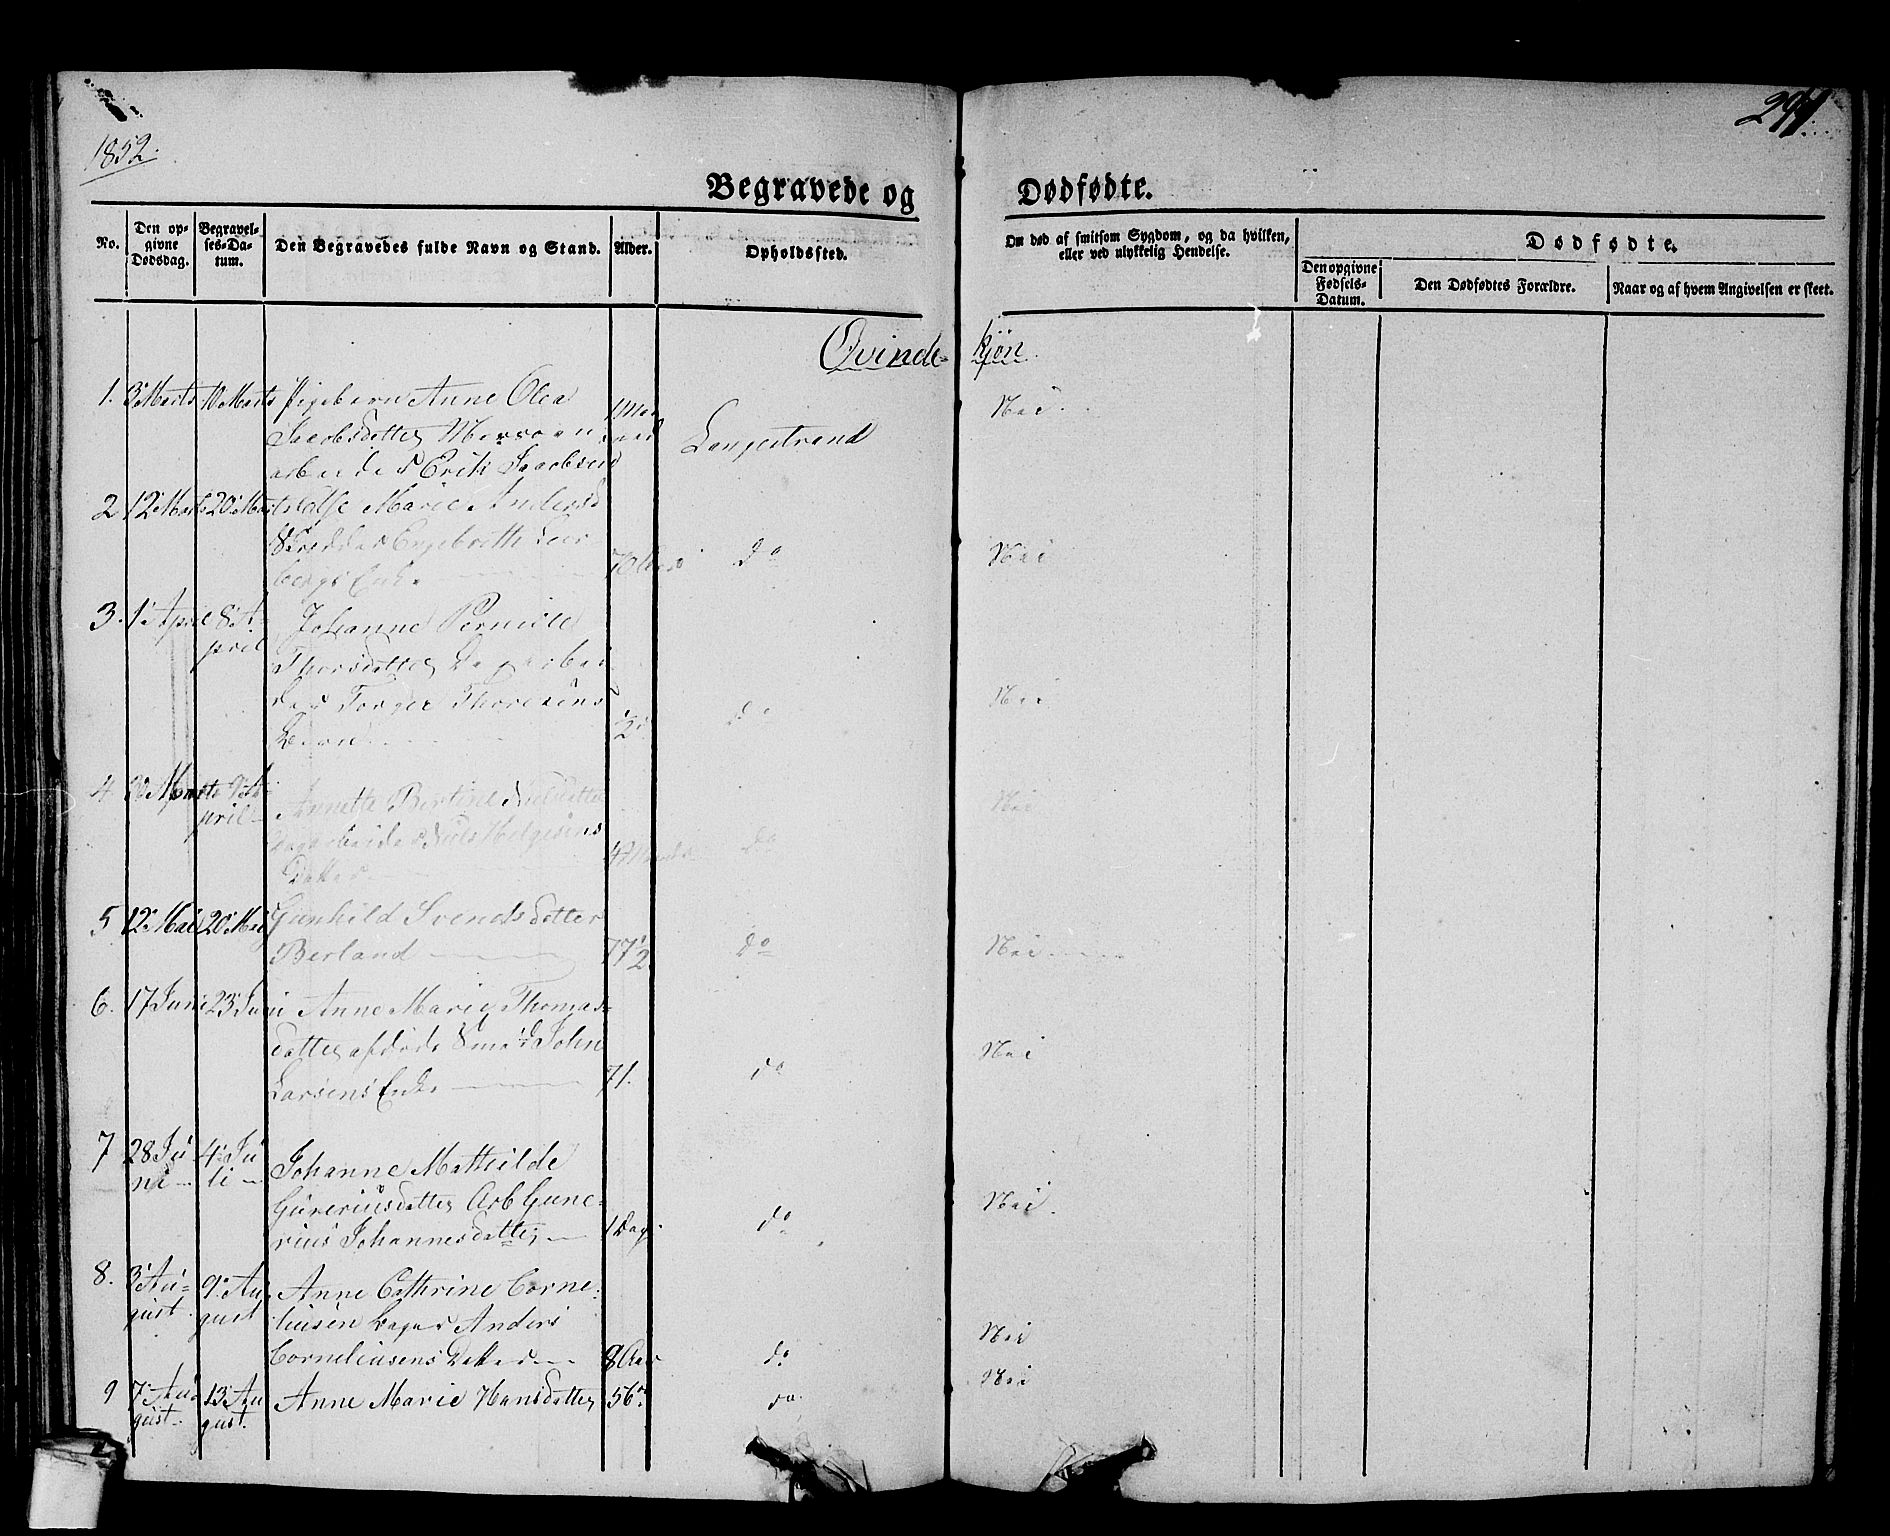 1852.
291
Begravede og Dødfødte.
No.
Den opgivne Dødsdag.
Begravelses-Datum.
Den Begravedes fulde Navn og Stand.
Alder.
Opholdssted.
Om død af smitsom Sygdom, og da hvilken,
eller ved ulykkelig Hendelse.
Dødfødte.
Den opgivne Fødsels-Datum.
Den Dødfødtes Forældre.
Naar og af hvem Angivelsen er skeet.
Qvinde- kjøn.
1. 3 Marts 10 Marts Pigebarn Anne Olea
Jacobsdatter
arbeider Erik Jacobsens
Langestrand
Nei
2 12 Marts 20 Marts Else Marie Anders d
Skredder Engebreth
bergs Enke 70 Aar do Nei
3. 1 April 8 April Johanne Pernille
Thorsdatter Dagarbei
der Torger Thoresens
1/2 do Nei
4 30 Marts 9 April Annette Bertine Nielsdatter
Dagarbeider Niels Helgesens
Datter 4 do Nei
5 12 Mai 20 Mai Gunhild Svendsdatter
Berland 77 1/2 do Nei
6. 17 Juni 23 Juni Anne Marie Thomas-
datter afdøde Smed John
Larsens Enke 71. do Nei
7 28 Juni 4 Juli Johanne Mathilde
Guneriusdatter Arb Gune-
rius Johannesdatter 1 Dag do Nei.
8. 3 August 9 August Anne Cathrine Corne-
liusen Anders
Corneliusens Datter 8 Aar do Nei
9 7 August 13 August Anne Marie Hansdatter 56 do. Nei